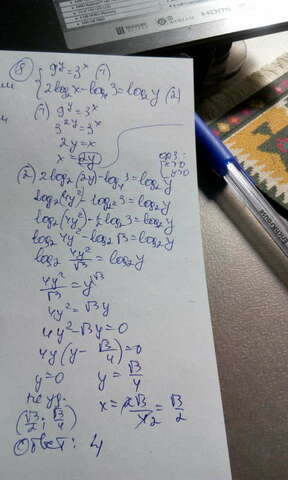 8 { 9^y = 3^x (1)
2log₂x - log₂3 = log₂y (2)
(1) 9^y = 3^x
3^2y = 3^x
2y = x
x = 2y
ОДЗ:
x>0
y>0
(2) 2log₂(2y) - log₄3 = log₂y
log₂(4y²) - log₂²3 = log₂y
log₂(4y²) - ½log₂3 = log₂y
log₂4y² - log₂√3 = log₂y
log₂ 4y²/√3 = log₂y
4y²/√3 = y
4y² = √3y
4y² - √3y = 0
4y(y - √3/4) = 0
y = 0 y = √3/4
не уд. x = 2√3/4₂ = √3/2
(√3/2; √3/4)
Ответ: 4